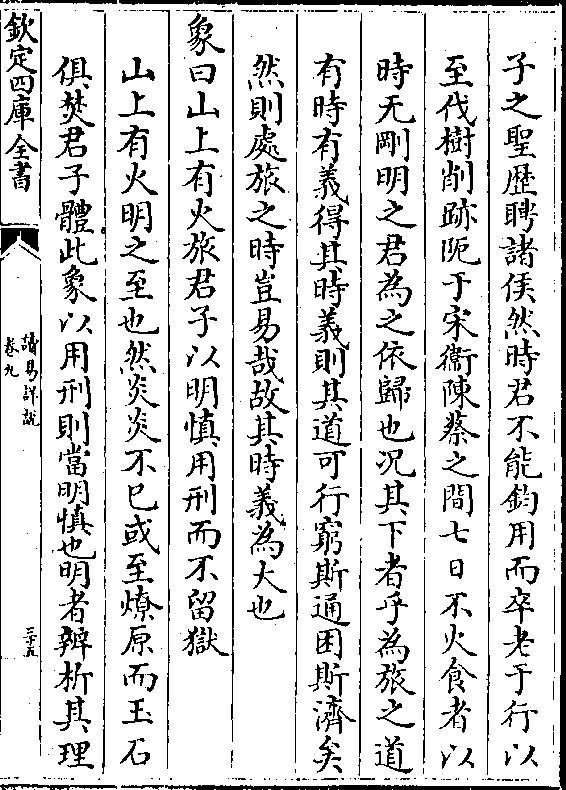 子之聖歴聘諸侯然時君不能鈞用而卒老于行以
至伐樹削跡阨于宋衞陳蔡之間七日不火食者以
時无剛明之君為之依歸也况其下者乎為旅之道
有時有義得其時義則其道可行窮斯通困斯濟矣
然則處旅之時豈易哉故其時義為大也
象曰山上有火旅君子以明慎用刑而不留獄
山上有火明之至也然炎炎不已或至燎原而玉石
俱焚君子體此象以用刑則當明慎也明者辨析其理
欽定四庫全書
讀易詳說
卷九
三十五